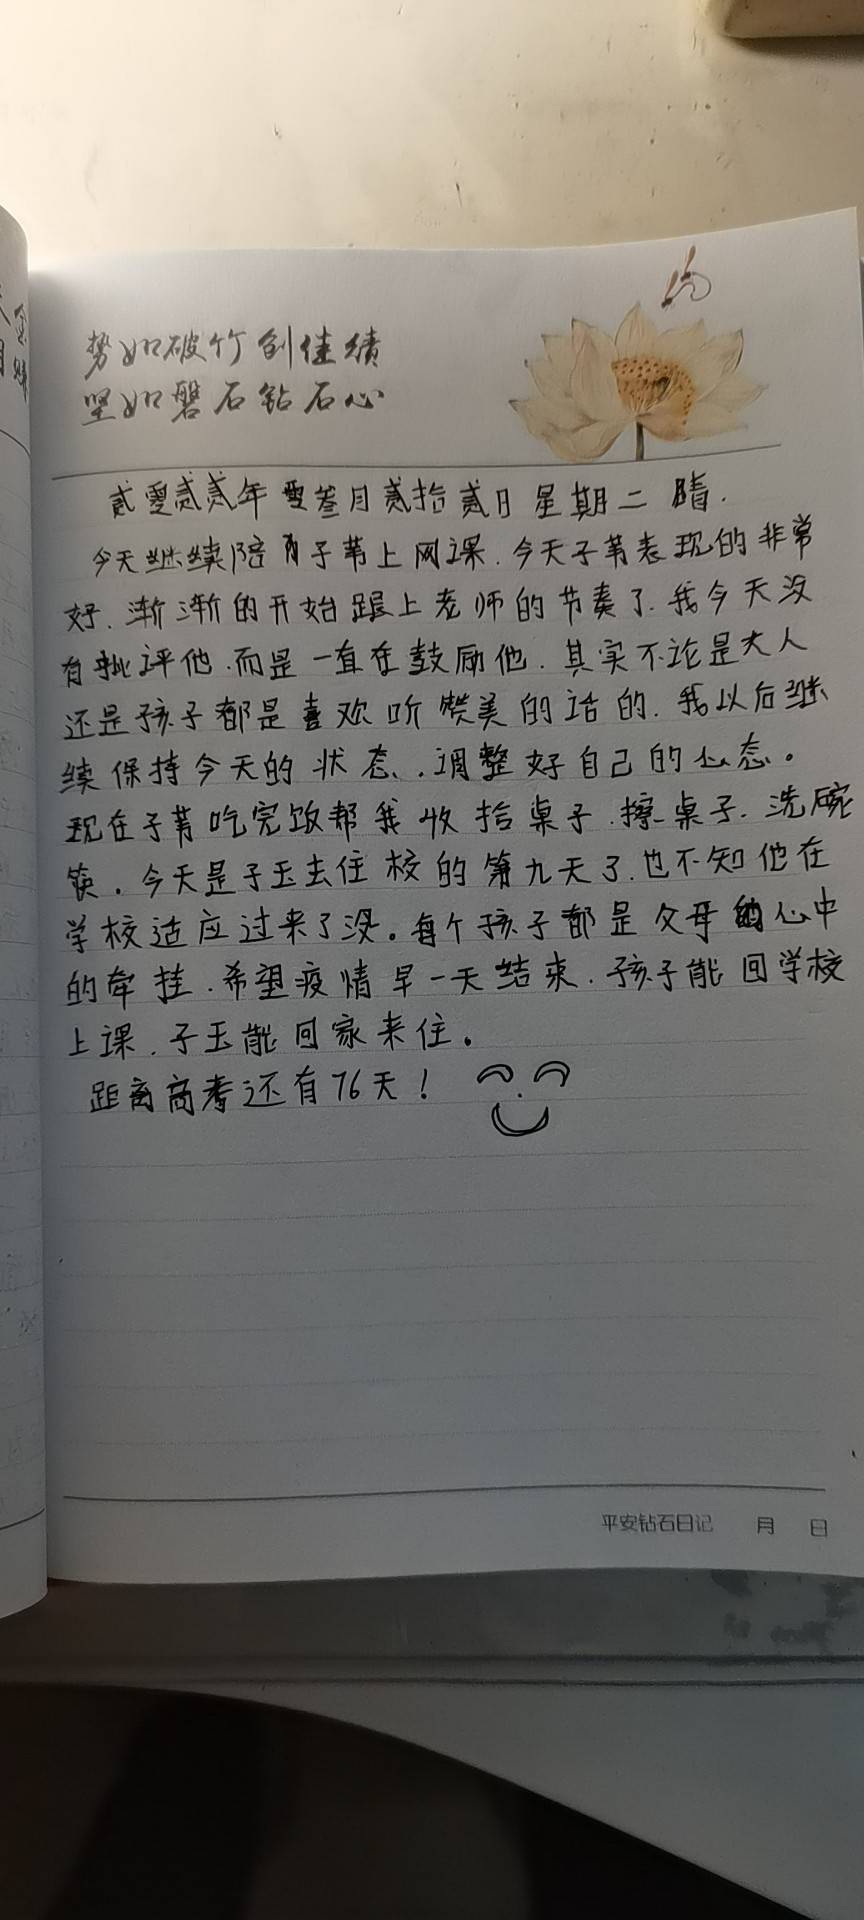 势如破竹创佳绩
坚如磐石钻石心
贰零贰贰年零叁月贰拾贰日星期二 晴.
今天继续陪子苇上网课.今天子苇表现的非常
好.渐渐的开始跟上老师的节奏了.我今天没
有批评他.而是一直在鼓励他.其实不论是大人
还是孩子都是喜欢听赞美的话的.我以后继
续保持今天的状态.调整好自己的心态。
现在子苇吃完饭帮我收拾桌子.擦桌子.洗碗
筷.今天是子玉去住校的第九天了.也不知他在
学校适应过来了没。每个孩子都是父母的心中
的牵挂.希望疫情早一天结束.孩子能回学校
上课.子玉能回家来住。
距离高考还有76天!
平安钻石日记 月 日